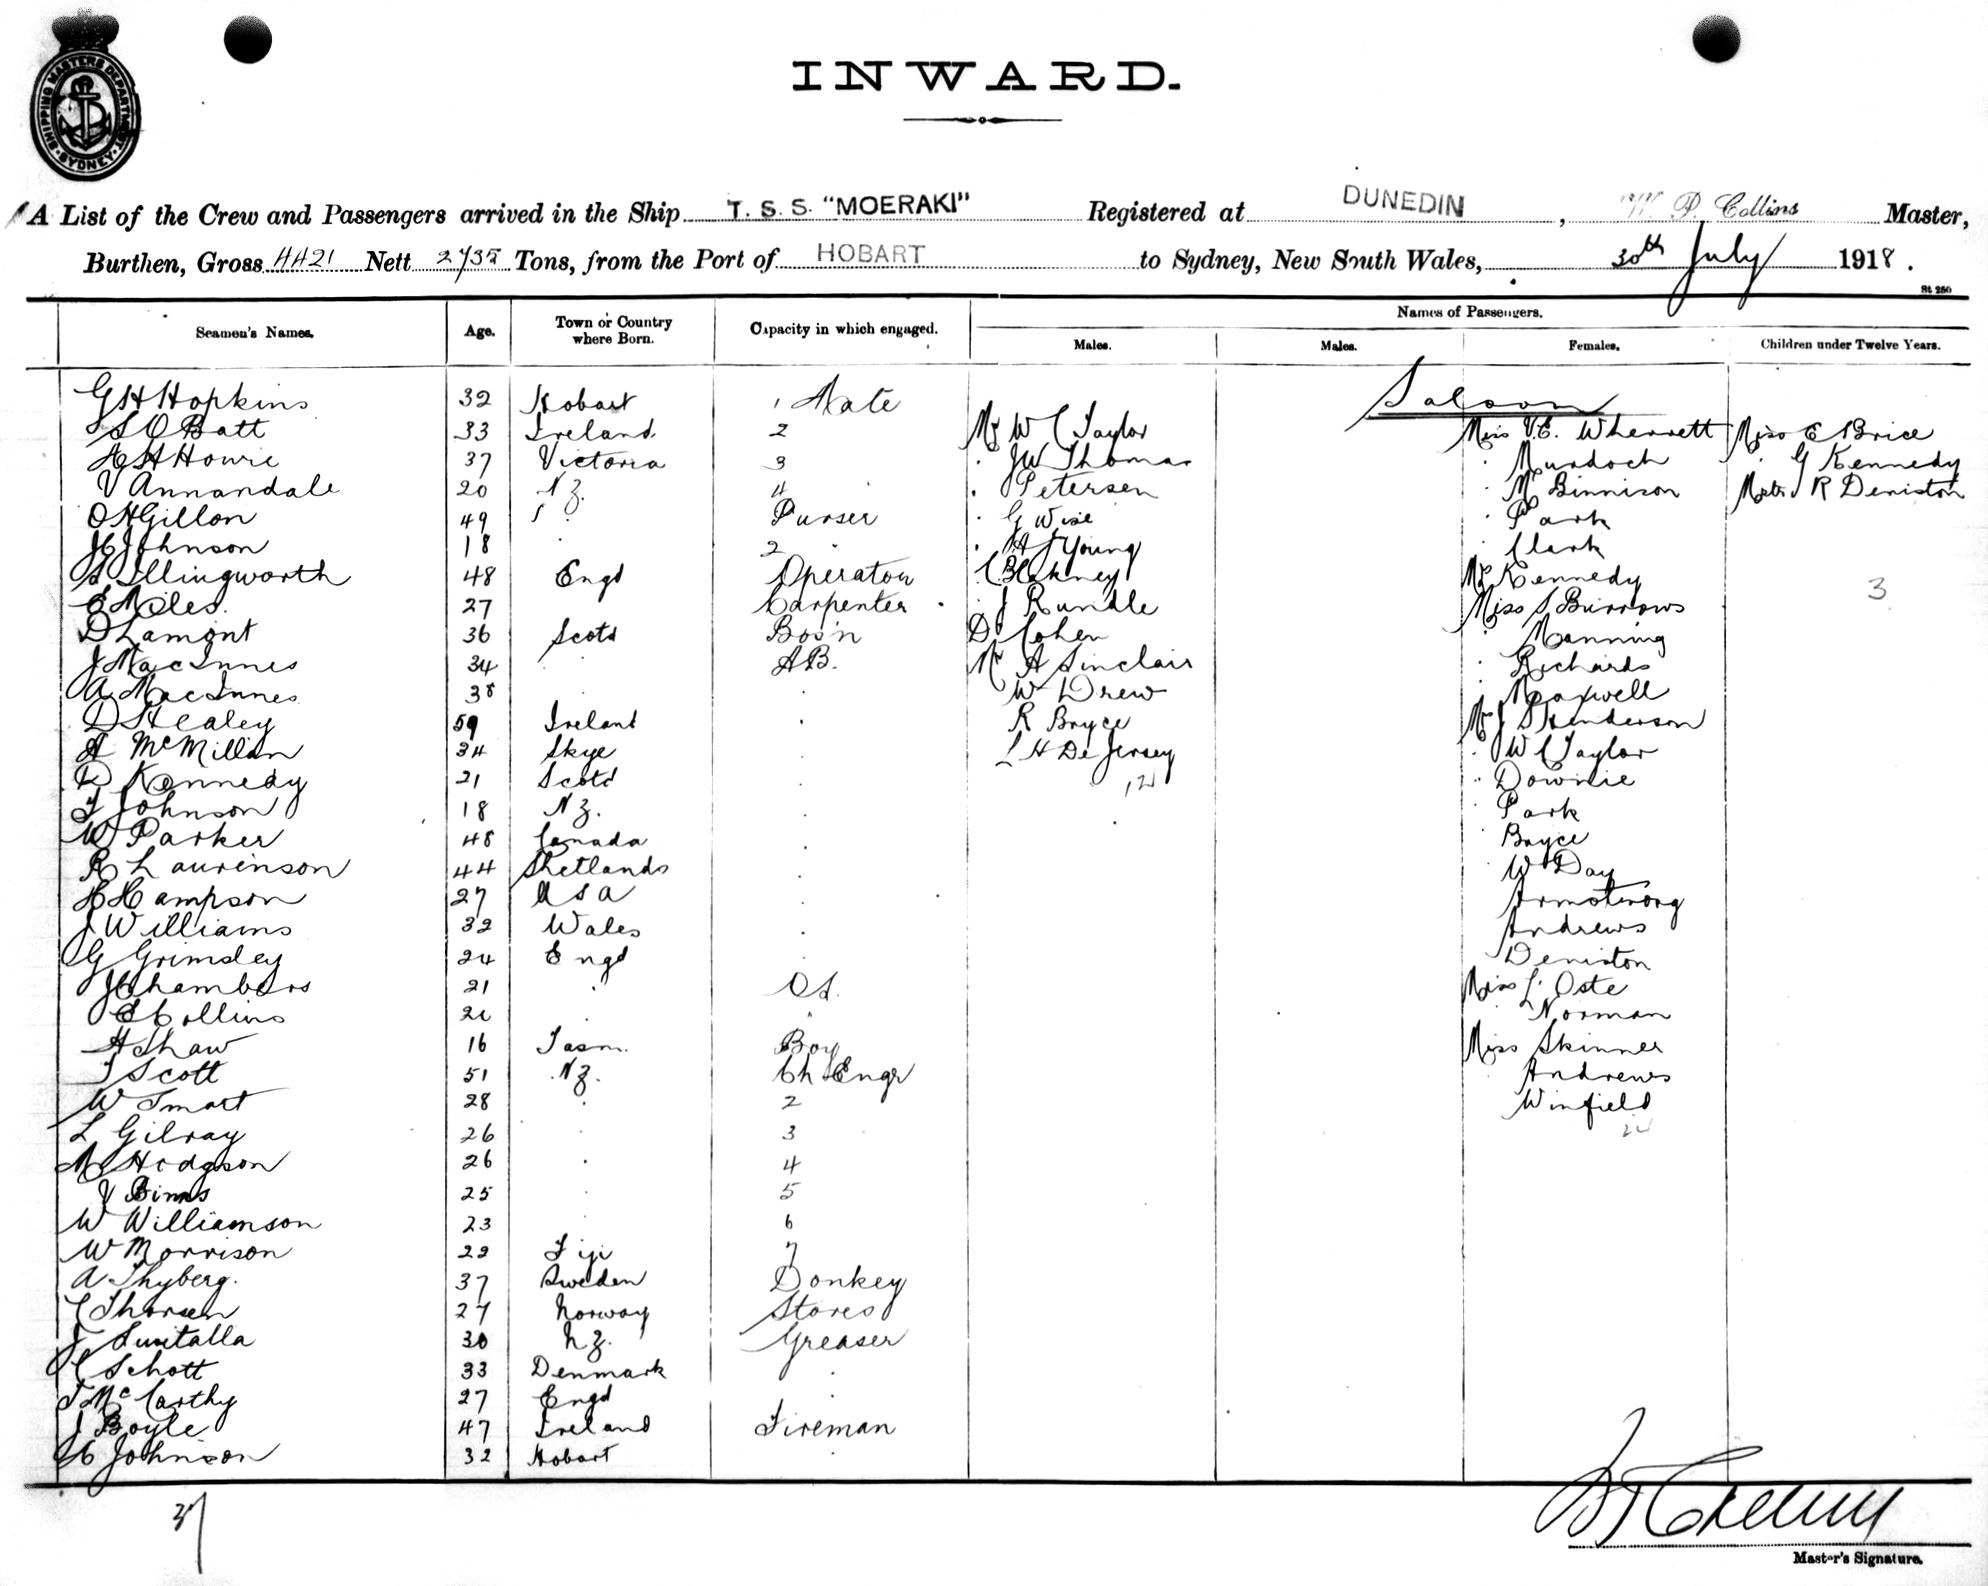 SHIPPING MASTERS DEPARTMENT
SYDNEY
INWARD.
A List of the Crew and Passengers arrived in the Ship T. S. S. "MOERAKI" Registered at DUNEDIN, W. P. Collins Master,
Burthen, Gross 4421 Nett 2735 Tons, from the Port of HOBART to Sydney, New South Wales, 30th July 1918.
St 250
Seamen's Names. Age. Town or Country where Born. Capacity in which engaged. Names of Passengers.
Males. Males. Females. Children under Twelve Years.
Saloon
G H Hopkins 32 Hobart 1 Mate
S O Batt 33 Ireland 2 Mr W C Taylor Miss V.E. Wherrett Miss E Brice
A H Howie 37 Victoria 3 " J W Thomas " Murdoch " G Kennedy
V Annandale 20 N Z. 4 " Petersen " McBinnison Mstr R Deniston
O H Gillon 49 " Purser " G Wise " Park
J C Johnson 18 " 2 " " H J Young " Clark
S Illingworth 48 Engd Operator C Blakney Mrs Kennedy 3
E Miles 27 " Carpenter J Rundle Miss S Burrows
D Lamont 36 Scotd Bos'n Dr Cohen " Manning
J MacInnes 34 " A B. Mr A Sinclair " Richards
A MacInnes 38 " " W Drew " Maxwell
D Healey 59 Ireland " R Bryce Mrs J S Henderson
A McMillan 34 Skye " L H De Jersey " W C Taylor
D Kennedy 21 Scotd " 12 " Downie
T Johnson 18 N Z. " " Park
W Parker 48 Canada " " Bryce
R Laurenson 44 Shetlands " " W Day
H Hampson 27 U S A " " Armstrong
J Williams 32 Wales " " Andrews
G Grimsley 24 Engd " " Deniston
J Chambers 21 " O S. Miss L'Oste
E Collins 21 " " " Norman
A Shaw 16 Tasm. Boy Miss Skinner
T Scott 51 N Z. Ch Engr " Andrews
W Smart 28 " 2 " Winfield
L Gilray 26 " 3 24
M Hodgson 26 " 4
V Binns 25 " 5
W Williamson 23 " 6
W Morrison 22 Fiji 7
A Thyberg. 37 Sweden Donkey
C Thorsen 27 Norway Stores
J 30 N Z. Greaser
C Schott 33 Denmark "
T McCarthy 27 Engd "
J Boyle 47 Ireland Fireman
H Johnson 32 Hobart "
37
Master's Signature.